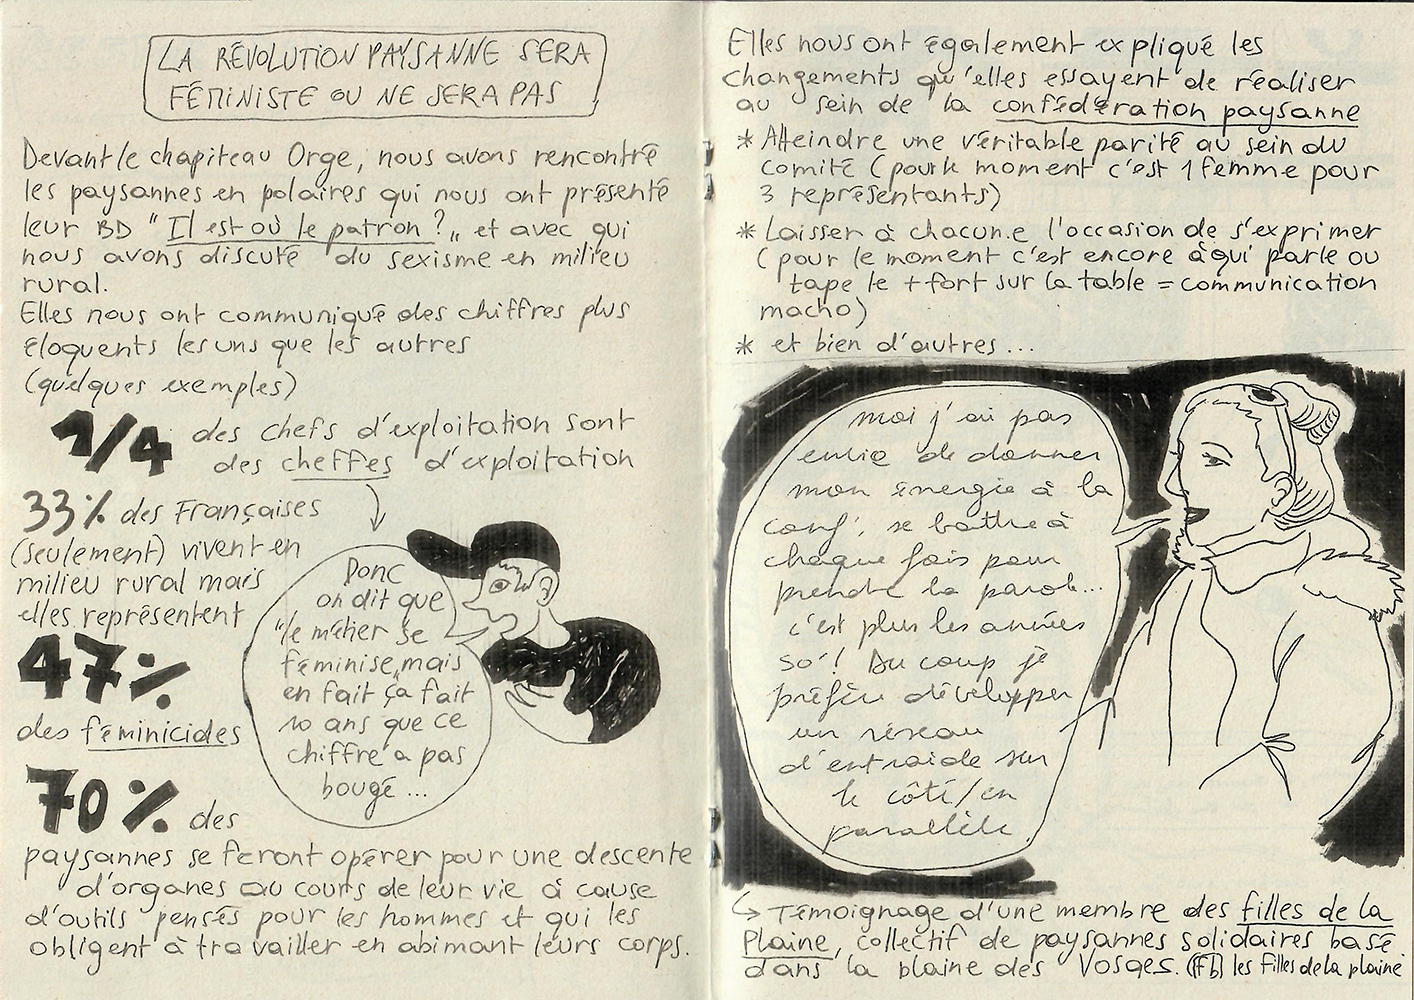 LA RÉVOLUTION PAYSANNE SERA
FÉMINISTE OU NE SERA PAS
Devant le chapiteau Orge, nous avons rencontré
les paysannes en polaires qui nous ont présenté
leur BD "Il est où le patron ?„ et avec qui
nous avons discuté du sexisme en milieu
rural.
Elles nous ont communiqué des chiffres plus
éloquents les uns que les autres
(quelques exemples)
1/4 des chefs d'exploitation sont
des cheffes d'exploitation
33% des Françaises
(seulement) vivent en
milieu rural mais
elles représentent
47%
des féminicides
Donc
on dit que
"le métier se
féminise„ mais
en fait ça fait
10 ans que ce
chiffre a pas
bougé ...
70% des
paysannes se feront opérer pour une descente
d'organes au cours de leur vie à cause
d'outils pensés pour les hommes et qui les
obligent à travailler en abimant leurs corps.
Elles nous ont également expliqué les
changements qu'elles essayent de réaliser
au sein de la confédération paysanne
* Atteindre une véritable parité au sein du
comité (pour le moment c'est 1 femme pour
3 représentants)
* Laisser à chacun.e l'occasion de s'exprimer
(pour le moment c'est encore à qui parle ou
tape le + fort sur la table = communication
macho)
* et bien d'autres ...
moi j'ai pas
envie de donner
mon énergie à la
conf', se battre à
chaque fois pour
prendre la parole...
c'est plus les années
50 ! Du coup je
préfère développer
un réseau
d'entraide sur
le côté/en
parallèle.
↳ Témoignage d'une membre des filles de la
Plaine, collectif de paysannes solidaires basé
dans la plaine des Vosges. (fb) les filles de la plaine